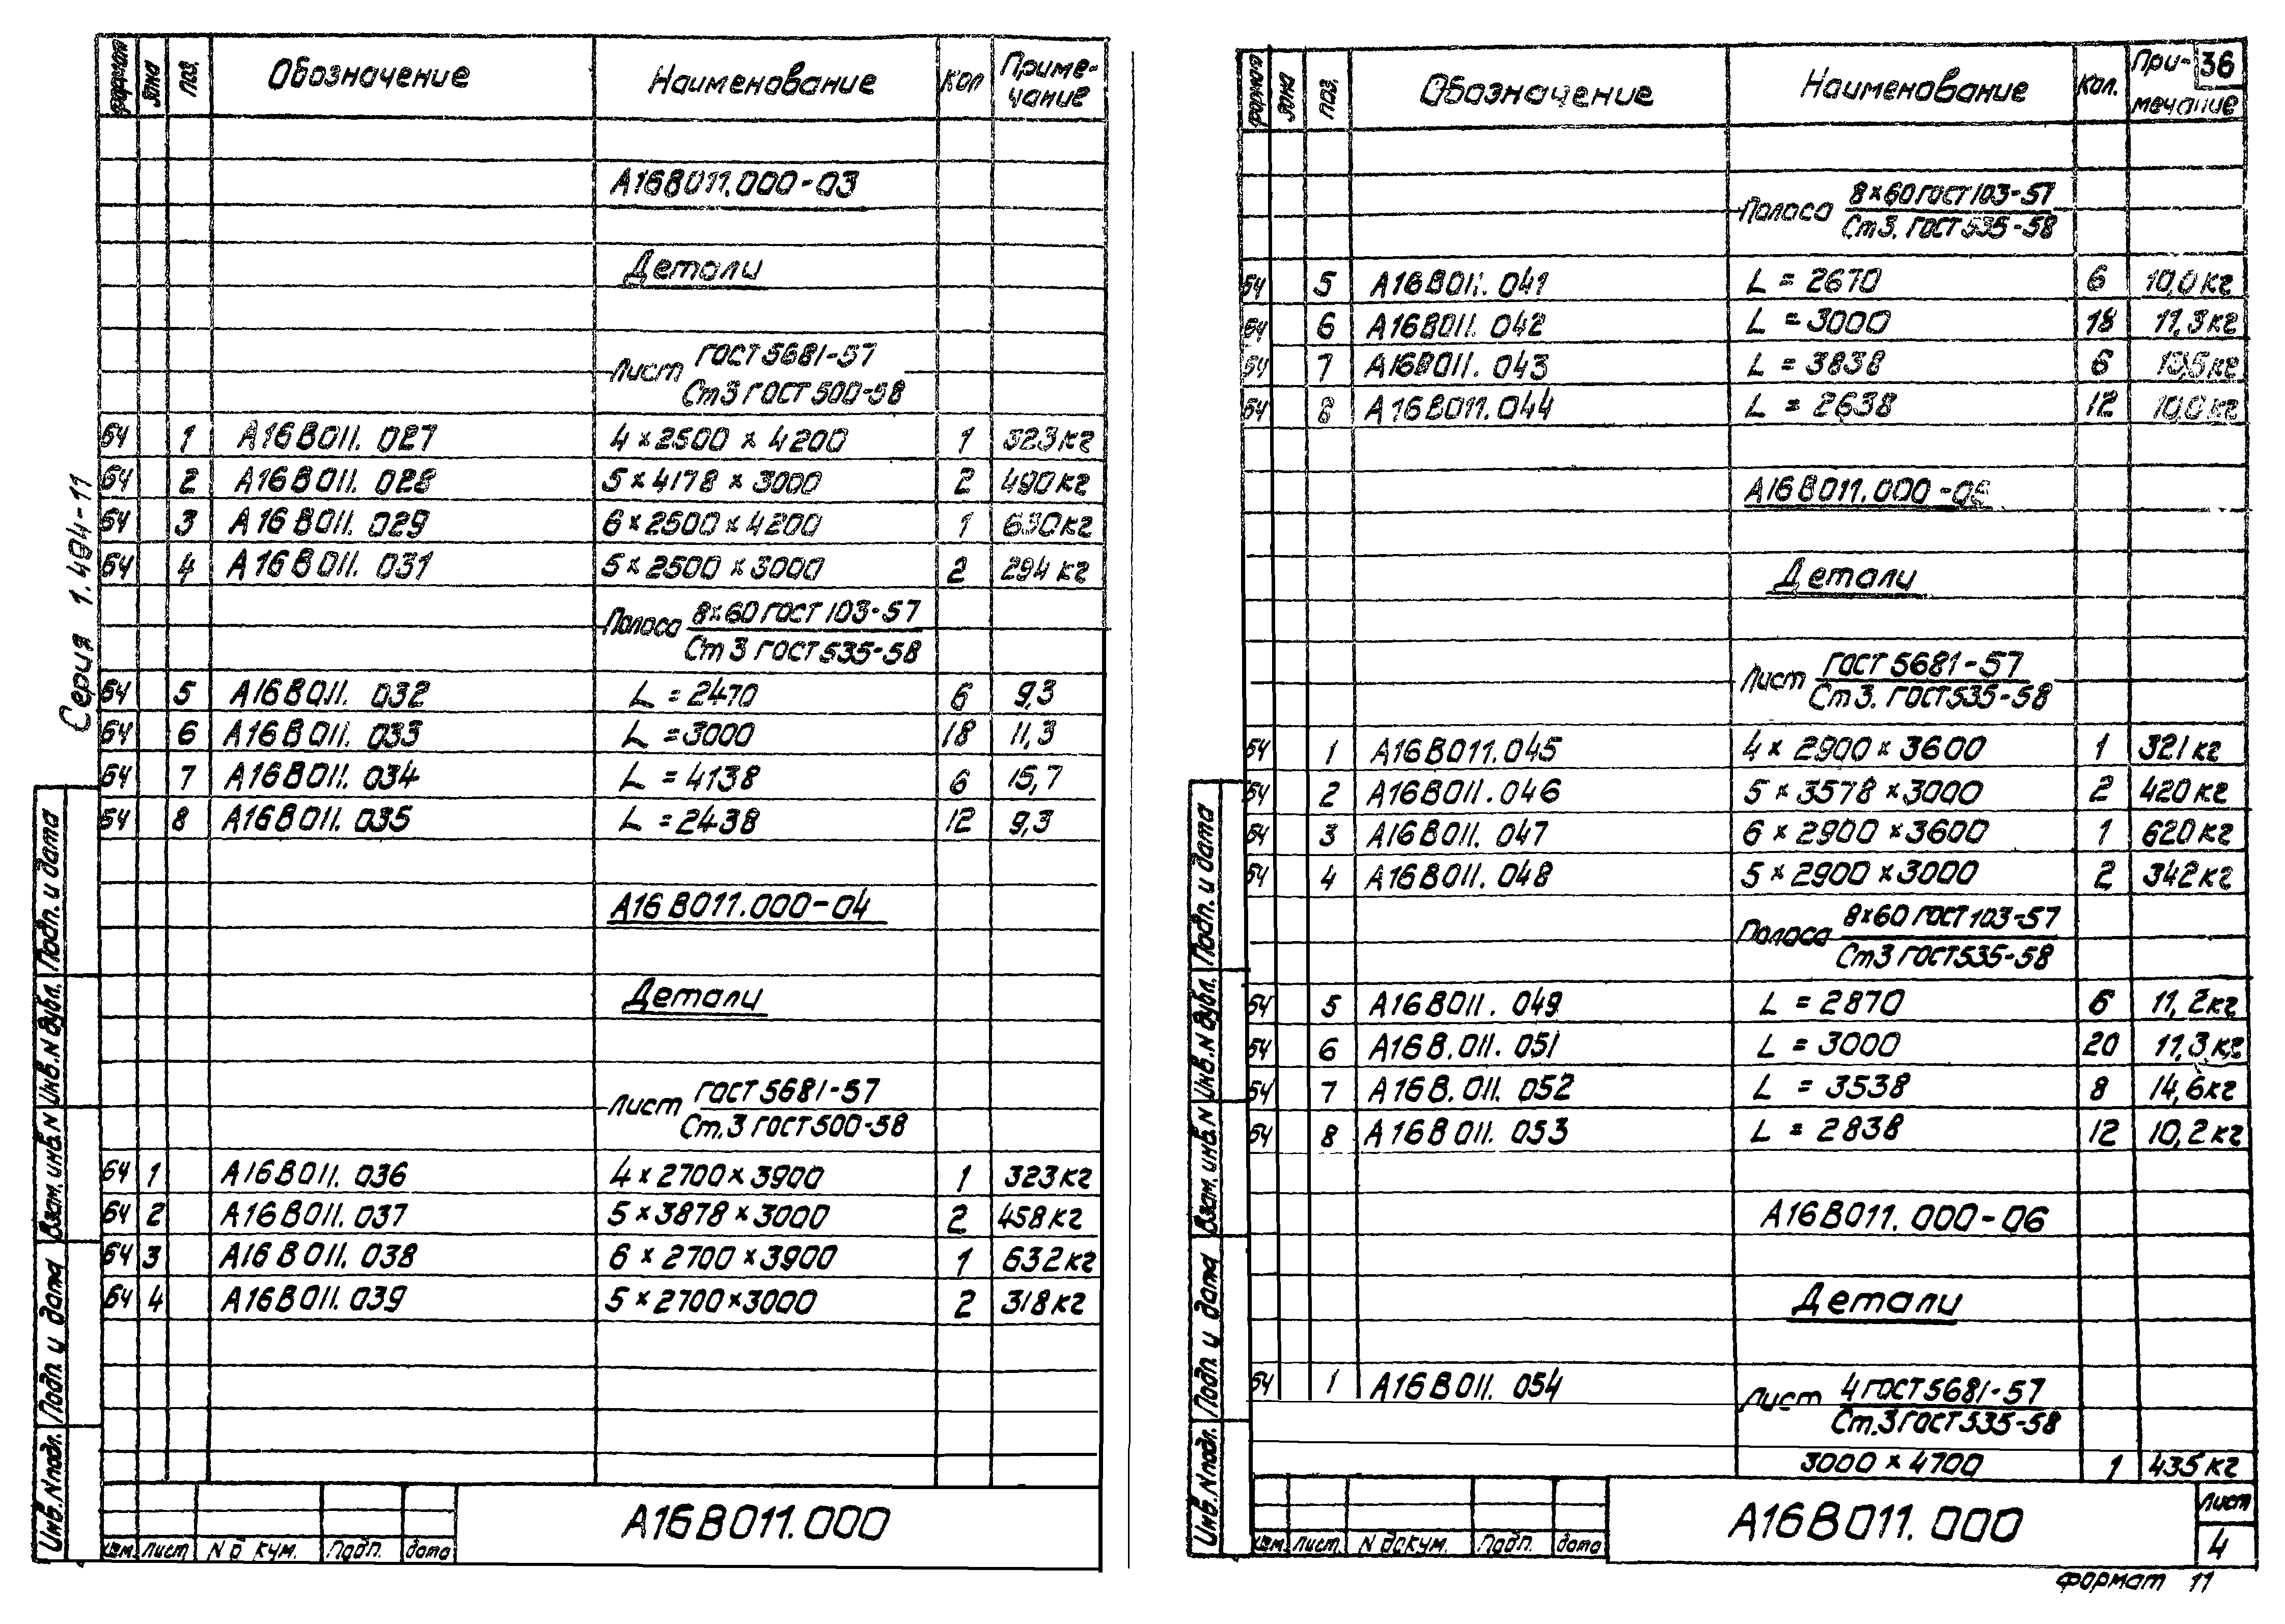 Серия 1.494-11
формат зона поз. Обозначение Наименование Кол Приме-
чание
А16В011.000-03
Детали
Лист ГОСТ 5681-57
Ст3 ГОСТ 500-58
БЧ 1 А16В011.027 4×2500×4200 1 323кг
БЧ 2 А16В011.028 5×4178×3000 2 490кг
БЧ 3 А16В011.029 6×2500×4200 1 630кг
БЧ 4 А16В011.031 5×2500×3000 2 294кг
Полоса 8×60 ГОСТ 103-57
Ст 3 ГОСТ 535-58
БЧ 5 А16В011.032 L=2470 6 9,3
БЧ 6 А16В011.033 L=3000 18 11,3
БЧ 7 А16В011.034 L=4138 6 15,7
БЧ 8 А16В011.035 L=2438 12 9,3
А16В011.000-04
Детали
Лист ГОСТ 5681-57
Ст.3 ГОСТ 500-58
БЧ 1 А16В011.036 4×2700×3900 1 323кг
БЧ 2 А16В011.037 5×3878×3000 2 458кг
БЧ 3 А16В011.038 6×2700×3900 1 632кг
БЧ 4 А16В011.039 5×2700×3000 2 318кг
Инв.Nподл. Подп. и дата Взам.инв.N Инв.N дубл. Подп. и дата
изм. лист N кум. Подп. дата
А16В011.000
36
формат зона поз. Обозначение Наименование Кол. При-
мечание
Полоса 8×60 ГОСТ 103-57
Ст3. ГОСТ 535-58
БЧ 5 А16В011.041 L=2670 6 10,0кг
БЧ 6 А16В011.042 L=3000 18 11,3кг
БЧ 7 А16В011.043 L=3838 6
БЧ 8 А16В011.044 L=2638 12 10,0кг
Детали
Лист ГОСТ 5681-57
Ст3. ГОСТ 535-58
БЧ 1 А16В011.045 4×2900×3600 1 321кг
БЧ 2 А16В011.046 5×3578×3000 2 420кг
БЧ 3 А16В011.047 6×2900×3600 1 620кг
БЧ 4 А16В011.048 5×2900×3000 2 342кг
Полоса 8×60 ГОСТ 103-57
Ст3 ГОСТ 535-58
БЧ 5 А16В011.049 L=2870 6 11,2кг
БЧ 6 А16В.011.051 L=3000 20 11,3кг
БЧ 7 А16В.011.052 L=3538 8 14,6кг
БЧ 8 А16В011.053 L=2838 12 10,2кг
А16В011.000-06
Детали
БЧ 1 А16В011.054 Лист 4 ГОСТ 5681-57
Ст.3 ГОСТ 535-58
3000×4700 1 435кг
Инв.Nподл. Подп. и дата Взам.инв.N Инв.N дубл. Подп. и дата
изм. лист. N докум. Подп. дата
А16В011.000
Лист
4
Формат 11